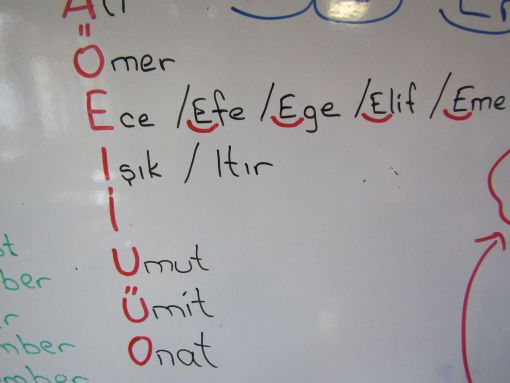 Ali
Ömer
Ece /Efe /Ege /Elif /Eme
Işık / Itır
İ
Umut
Ümit
Onat
ber
mber
mber